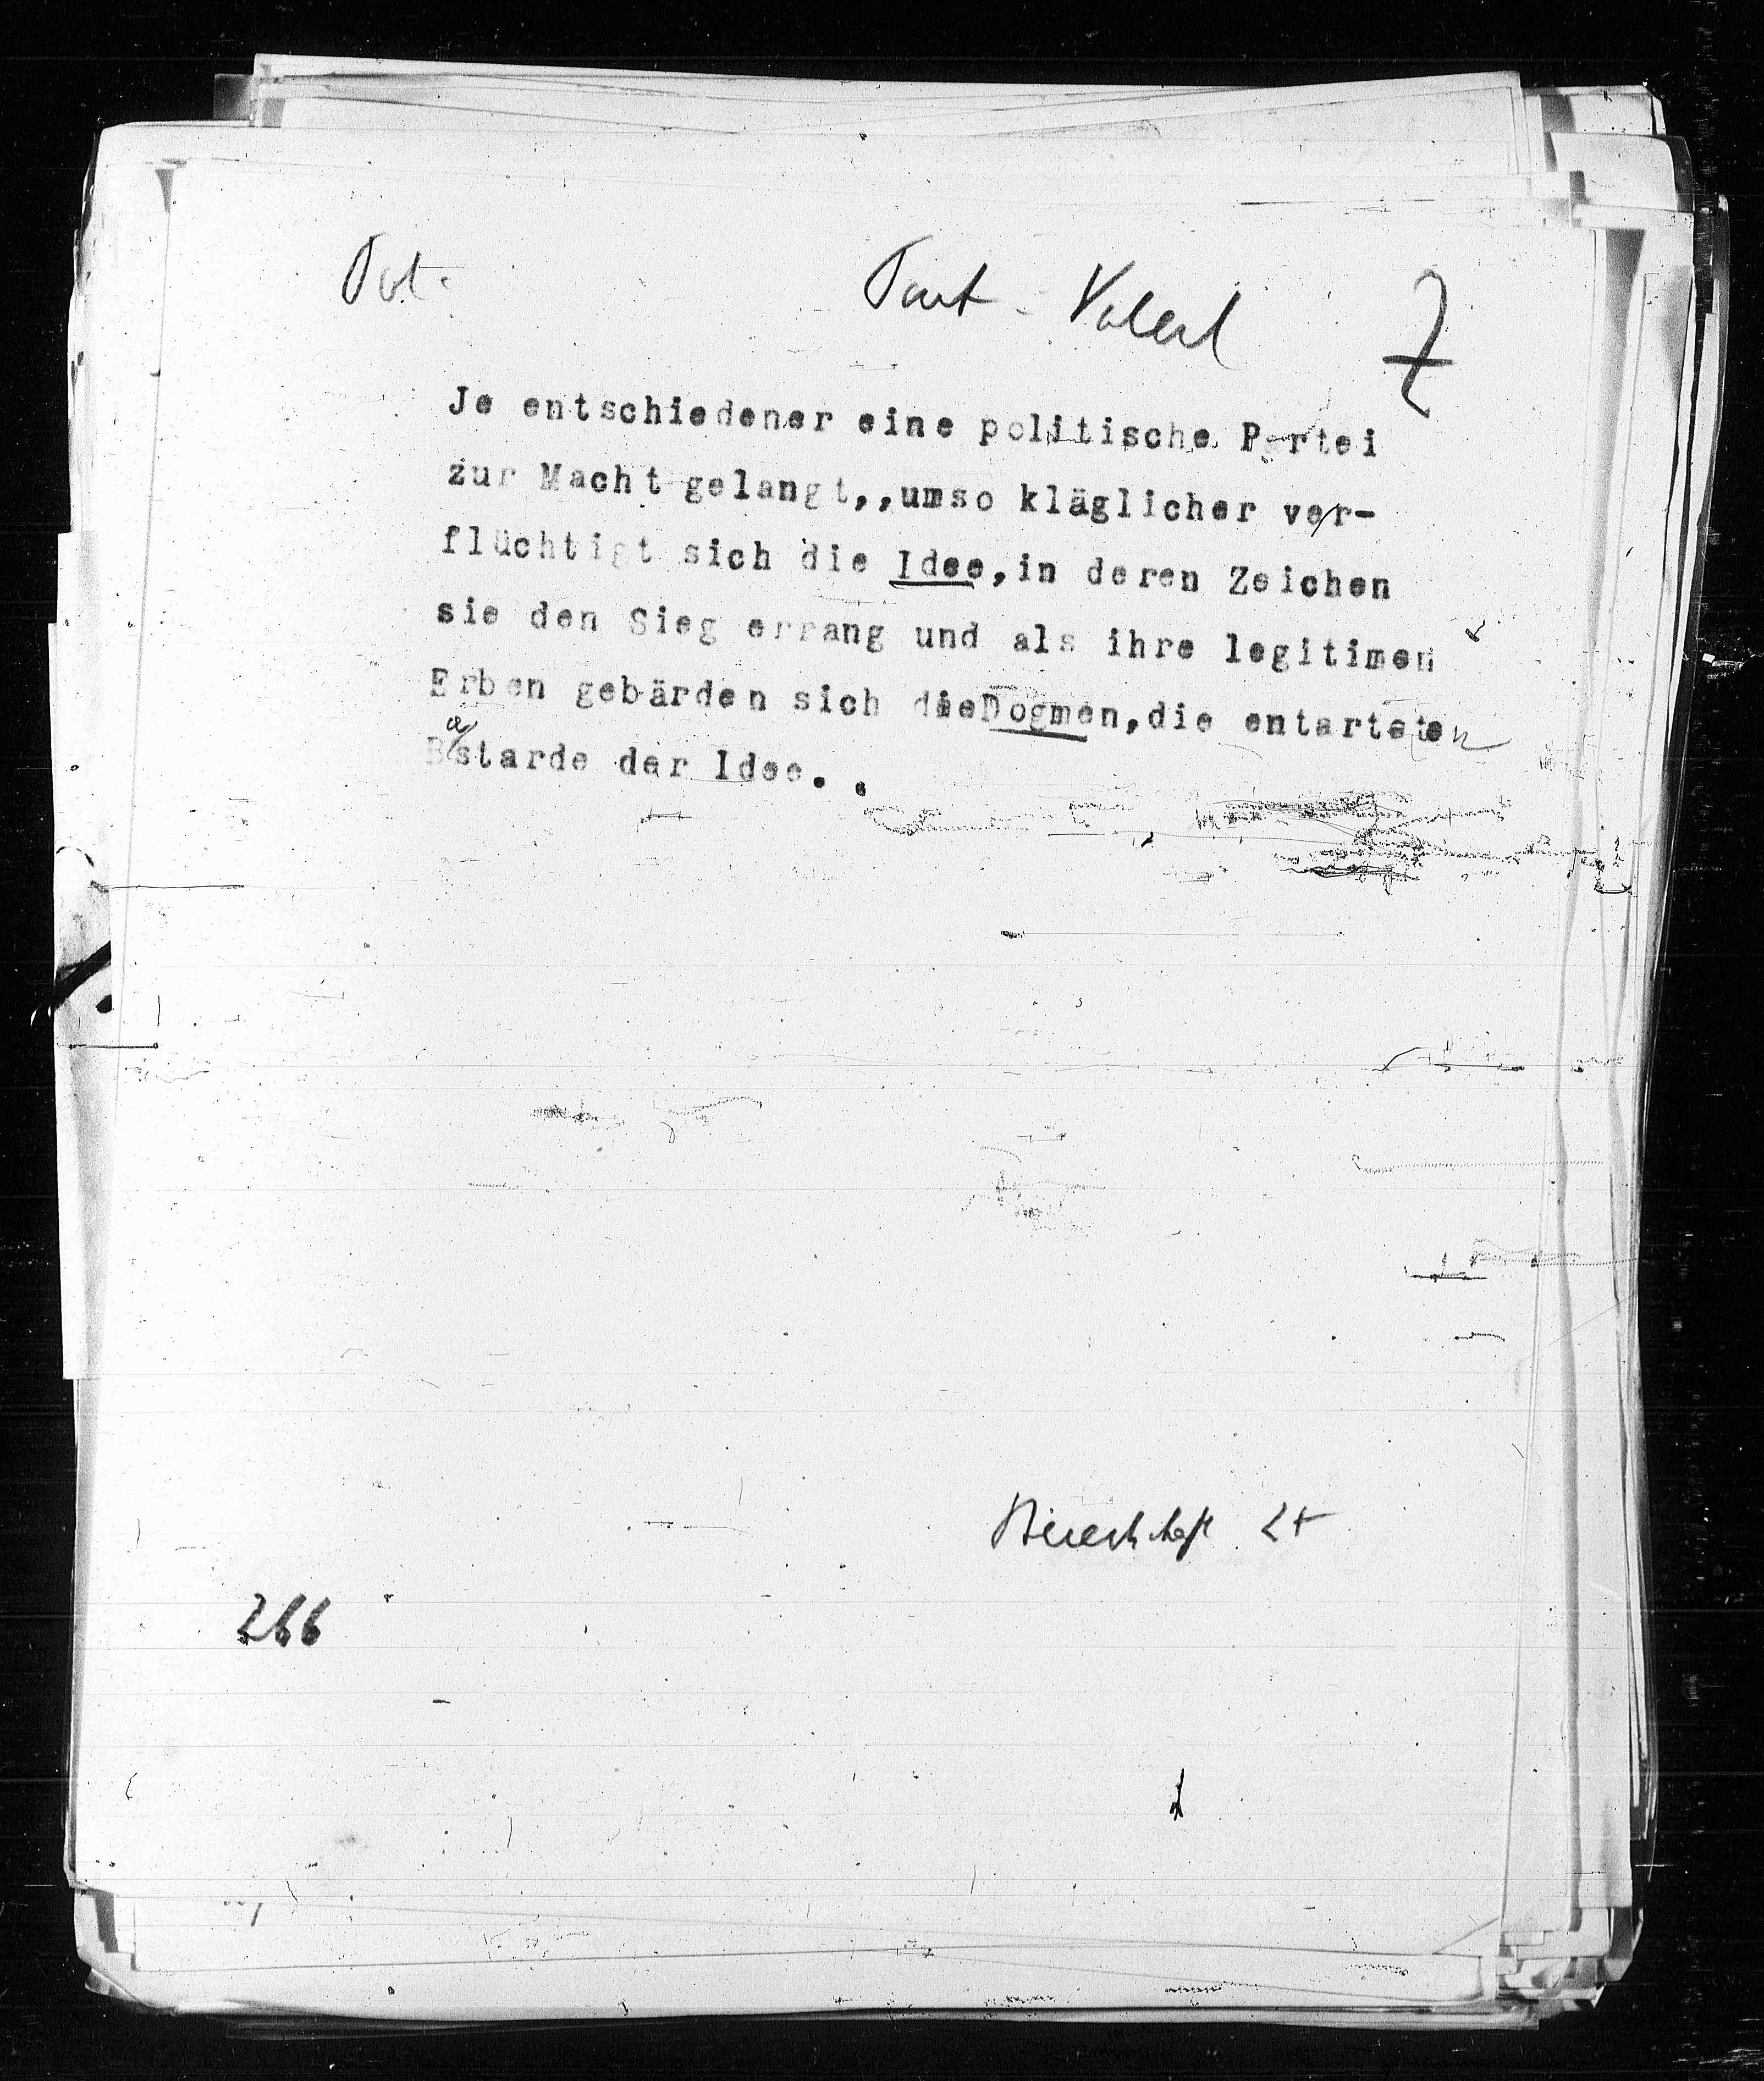 Part
7
Je entschiedener eine politische Partei
zur Macht gelangt,,umso kläglicher ver-
flüchtigt sich die Idee,in deren Zeichen
sie den Sieg errang und als ihre legitimen
Erben gebärden sich dieDogmen,die entarteten
Bastarde der Idee. .
266